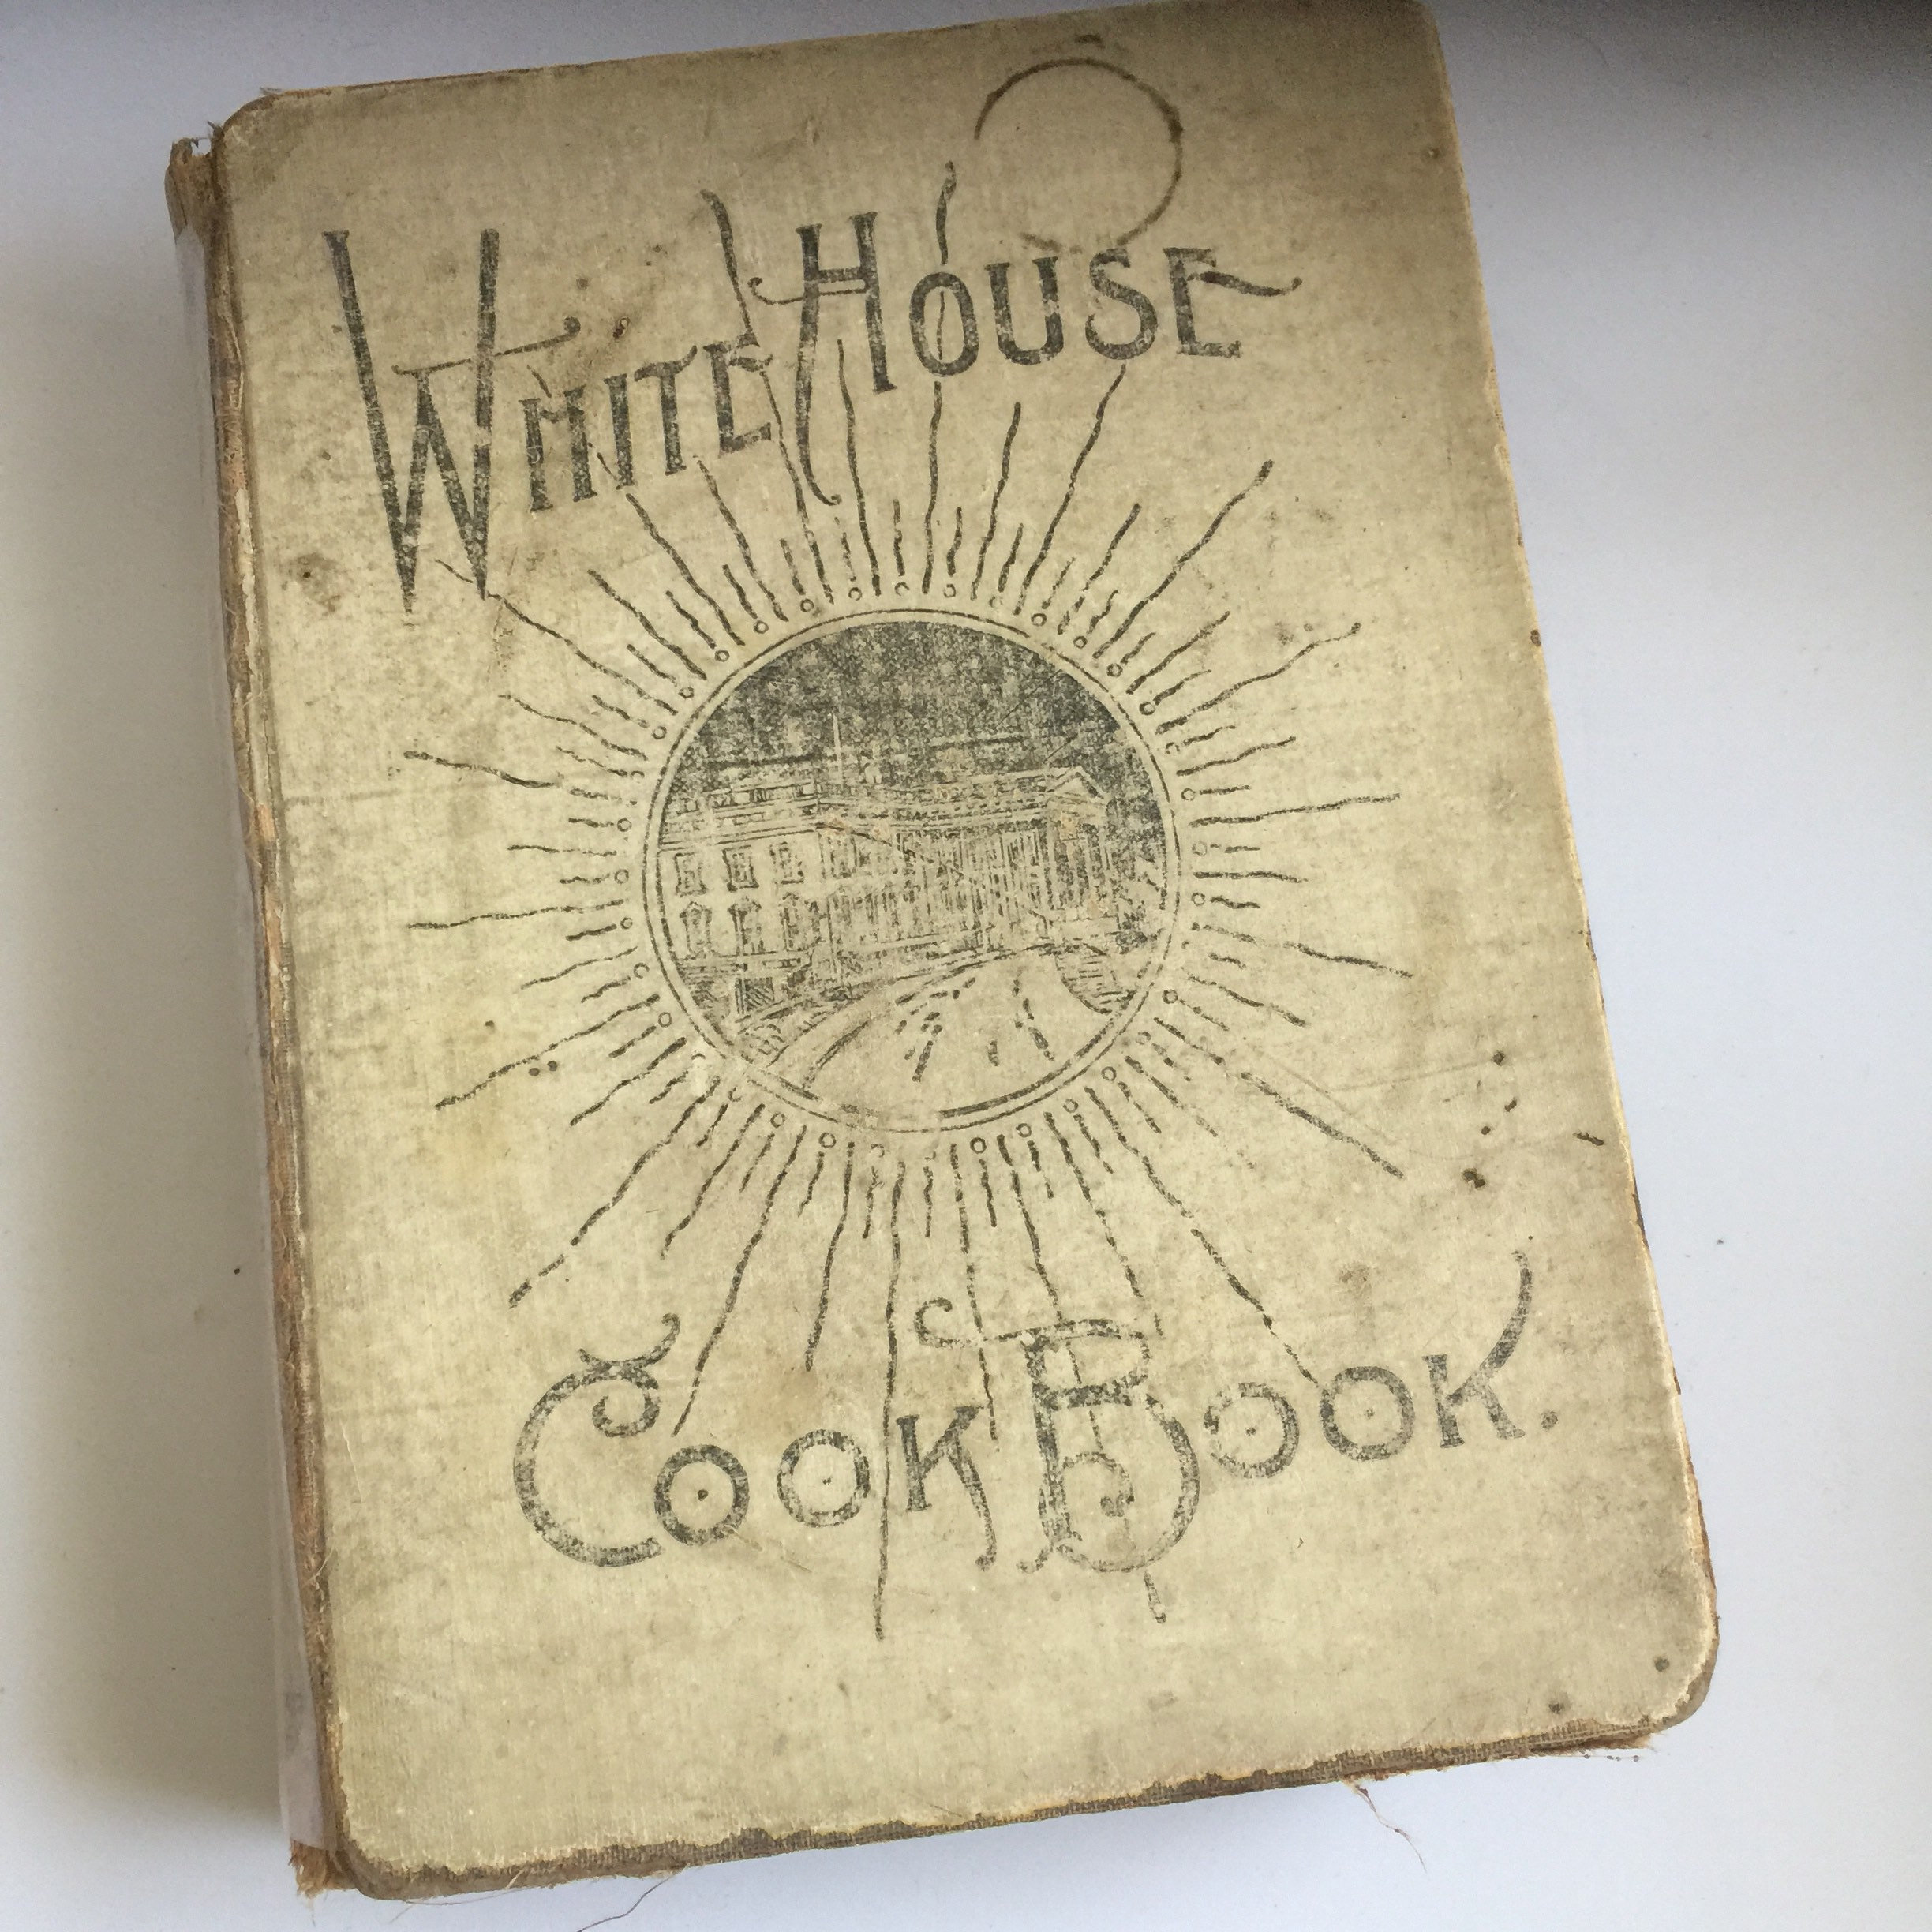 WHITE HOUSE
COOK BOOK.